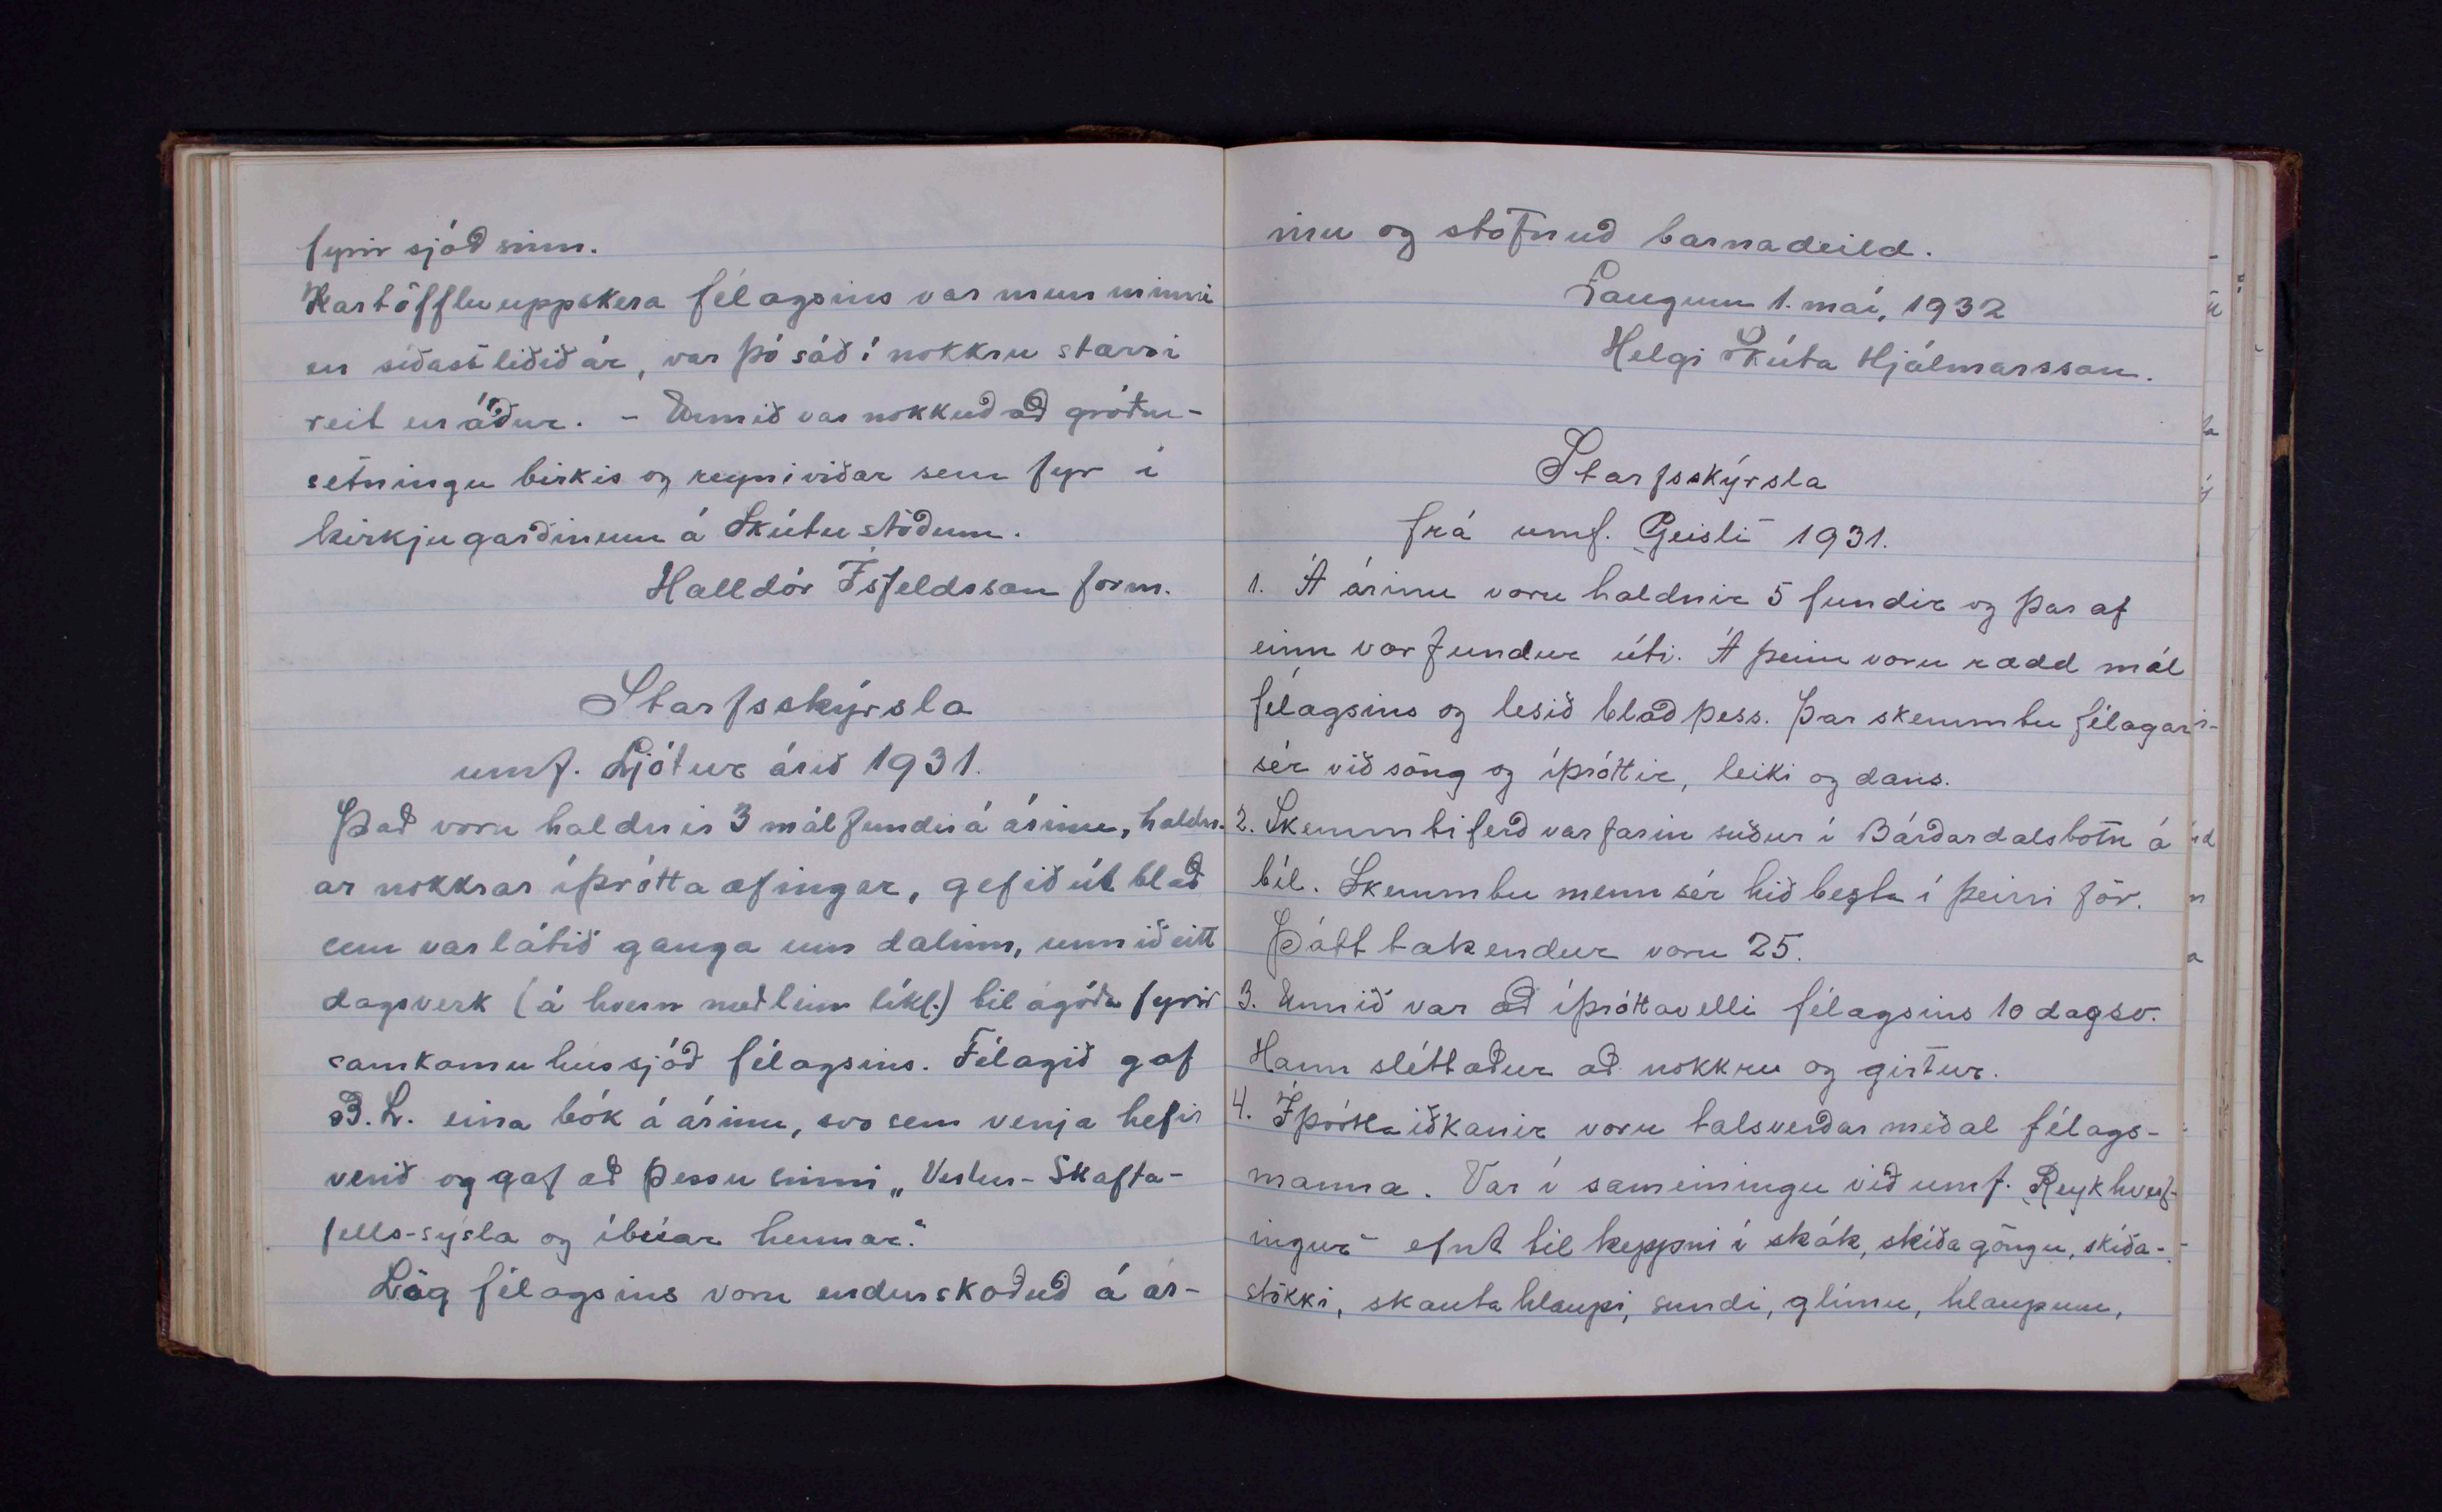 fyrir sjóð sinn.
Kartöffluuppskera félagsins var mun minni
en síðastliðið ár, var þó sáð í nokkru stærri
reit en áður. - Unnið var nokkuð að gróður-
setningu birkis og reyniviðar sem fyr í
kirkjugarðinum á Skútustöðum.
Halldór Ísfeldsson form.
Starfsskýrsla
umf. Ljótur árið 1931.
Það voru haldnir 3 málfundir á árinu, haldn-
ar nokkrar íþróttaæfingar, gefið út blað
sem var látið ganga um dalinn, unnið eitt
dagsverk (á hvern meðlim líkl.) til ágóða fyrir
samkomuhússjóð félagsins. Félagið gaf
B.L. eina bók á árinu, svo sem venja hefir
verið og gaf að þessu sinni „Vestur-Skafta-
fells-sýsla og íbúar hennar."
Lög félagsins voru endurskoðuð á ár-
inu og stofnuð barnadeild.
Laugum 1. maí, 1932
Helgi Skúta Hjálmarsson.
Starfsskýrsla
frá umf. „Geisli" 1931.
1. Á árinu voru haldnir 5 fundir og þar af
einn vorfundur úti. Á þeim voru rædd mál
félagsins og lesið blað þess. Þar skemmtu félagar
sér við söng og íþróttir, leiki og dans.
2. Skemmtiferð var farin suður í Bárðardalsbotn á
bíl. Skemmtu menn sér hið bezta í þeirri för.
Þátttakendur voru 25.
3. Unnið var að íþróttavelli félagsins 10 dagsv.
Hann sléttaður að nokkru og girtur.
4. Íþróttaiðkanir voru talsverðar meðal félags-
manna. Var í sameiningu við umf. „Reykhverf-
ingur" efnt til keppni í skák, skíðagöngu, skíða-
stökki, skautahlaupi, sundi, glímu, hlaupum,